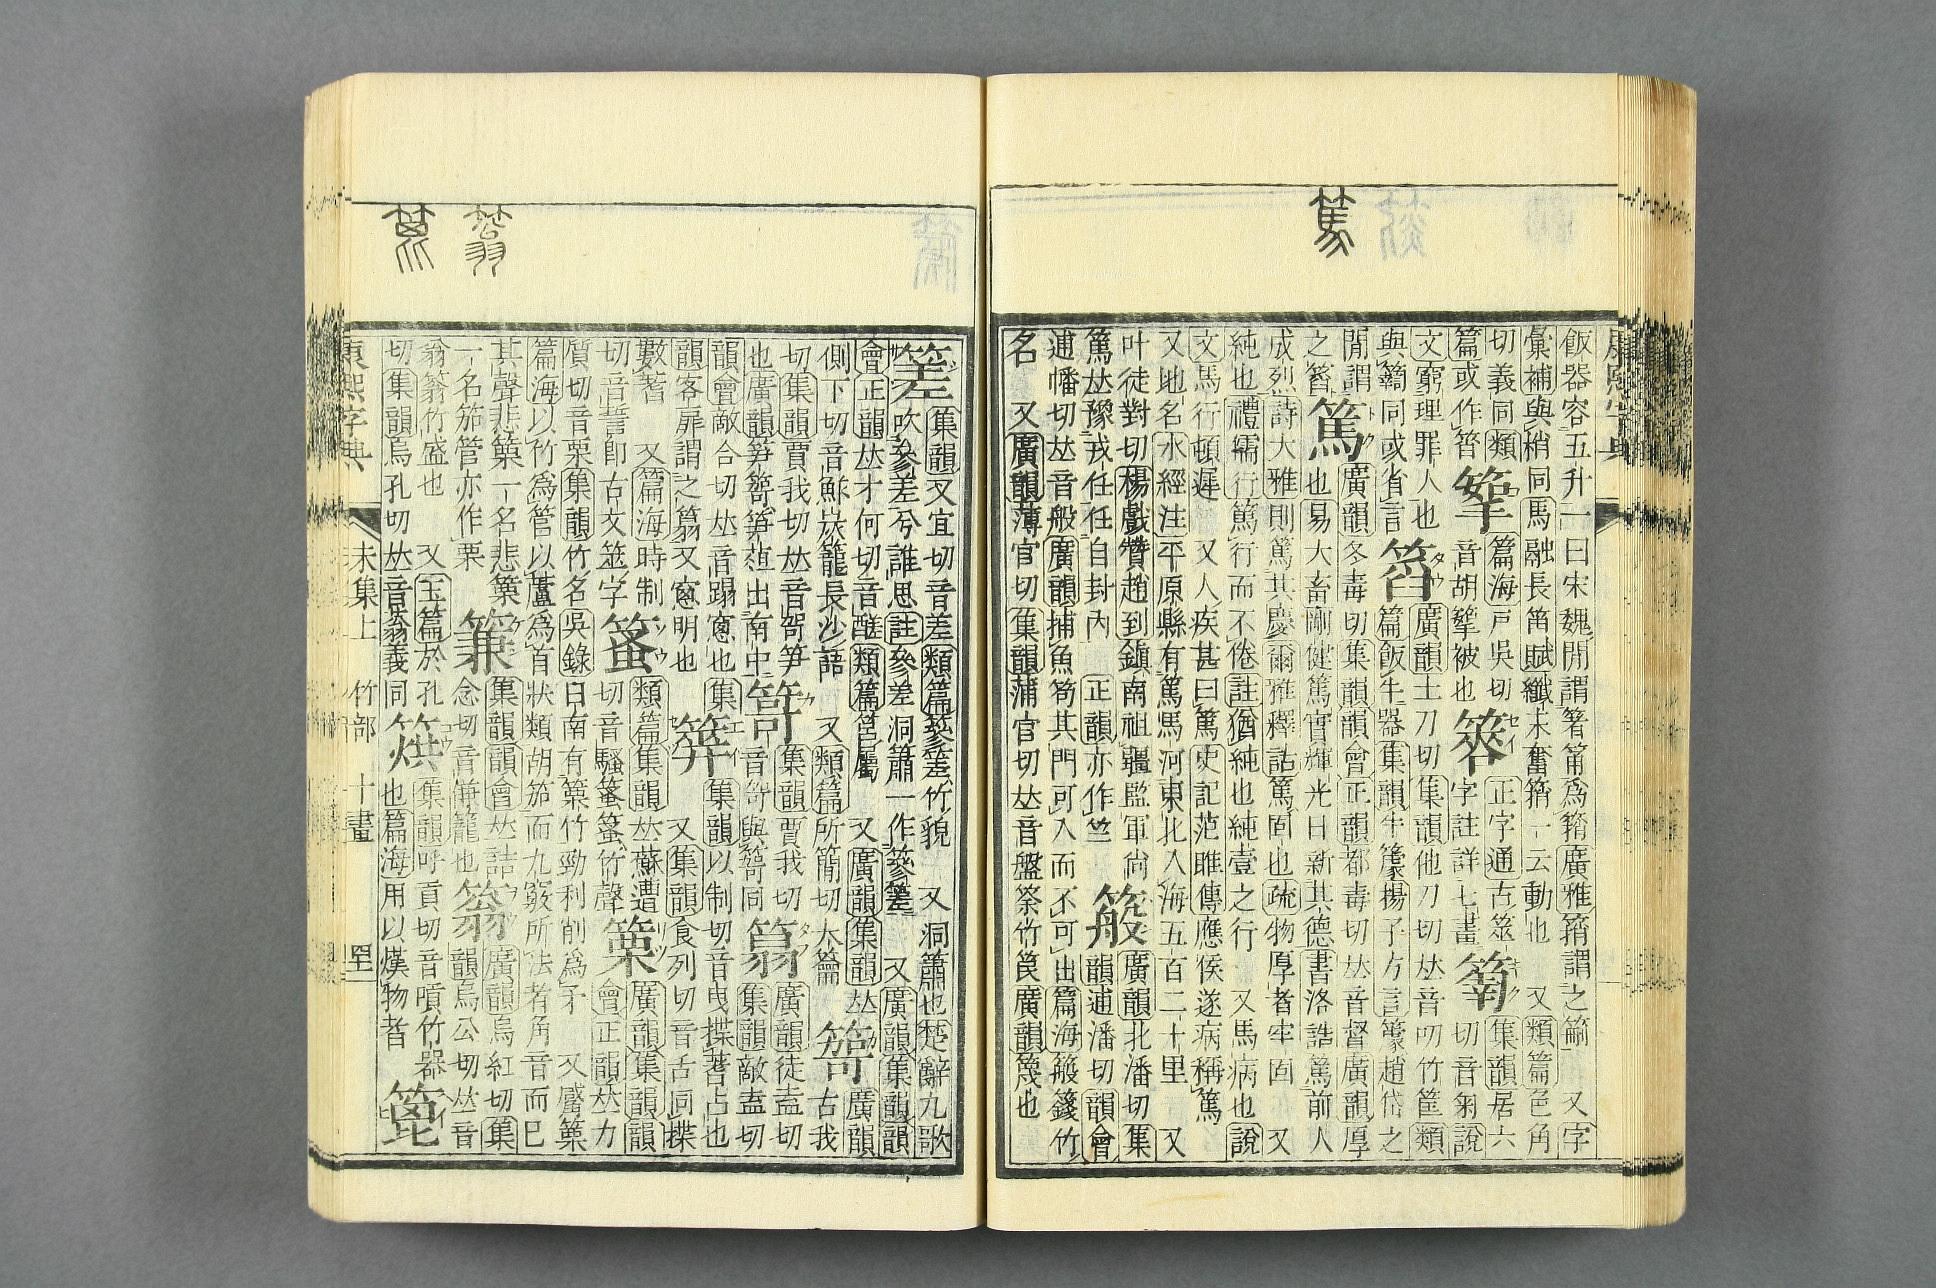 篤
飯器容五升一曰宋魏閒謂箸筩爲䈰廣雅䈰謂之䈾 又字
彙補與梢同馬融長笛賦纖末奮䈰一云動也 又類篇色角
切義同類篇海戸吳切 正字通古簭 集韻居六
篇或作箵 音胡拏被也 字註詳七畫 切音匊說
文窮理罪人也 廣韻土刀切集韻他刀切𠀤音叨竹筐類
與籣同或省言 篇飯牛器集韻牛籇揚子方言籇趙岱之
閒謂 廣韻冬毒切集韻韻會正韻都毒切𠀤音督廣韻厚
之㽃 篤 也易大畜剛健篤實輝光日新其德書洛誥篤前人
成烈詩大雅則篤其慶爾雅釋詁篤固也疏物厚者牢固 又
純也禮儒行篤行而不倦註猶純也純壹之行 又馬病也說
文馬行頓遲 又人疾甚曰篤史記范睢傳應侯遂病稱篤
又地名水經注平原縣有篤馬河東北入海五百二十里 又
叶徒對切楊戲贊趙到鎮南祖疆監軍尙 廣韻北潘切集
篤𠀤豫戎任任自封內 正韻亦作竺 韻逋潘切韻會
逋幡切𠀤音般廣韻捕魚笱其門可入而不可出篇海䈲籛竹
名 又廣韻薄官切集韻蒲官切𠀤音盤䈲竹筤廣韻篾也
䈉
篛
集韻叉宜切音差類篇篸䇪竹貌 又洞簫也楚辭九歌
吹參差兮誰思註參差洞簫一作篸䇪 又廣韻集韻韻
會正韻𠀤才何切音醝類篇筥屬 又廣韻集韻𠀤 廣韻
側下切音鮓炭籠長沙語 又類篇所簡切大籥 古我
切集韻賈我切𠀤音哿笋 集韻賈我切 廣韻徒盍切
也廣韻笋笴笋葅出南中 音笴與笴同 集韻敵盍切
韻會敵合切𠀤音蹋窻也 集韻以制切音曳揲蓍占也
韻客扉謂之䈳又窻明也 又集韻食列切音舌同揲
數蓍 又篇海時制 類篇集韻𠀤蘇遭 廣韻集韻韻
切音誓卽古文筮字 切音騷䈹䈹竹聲 會正韻𠀤力
質切音栗集韻竹名吳錄日南有篥竹勁利削爲矛 又觱篥
篇海以竹爲管以蘆爲首狀類胡笳而九竅所法者角音而已
其聲悲篥一名悲篥 集韻韻會𠀤詰 廣韻烏紅切集
一名笳管亦作栗 念切音䈴籠也 韻烏公切𠀤音
翁翁竹盛也 又玉篇於孔 集韻呼貢切音嗊竹器
切集韻烏孔切𠀤音蓊義同 也篇海用以熯物者
康熙字典 未集上 竹部 十畫